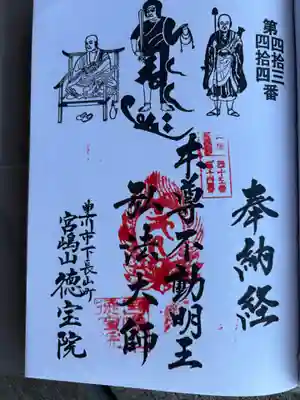 第四拾三
四拾四番
奉納経
本尊不動明王
弘法大師
豊川市下長山町
宮嶋山徳宝院